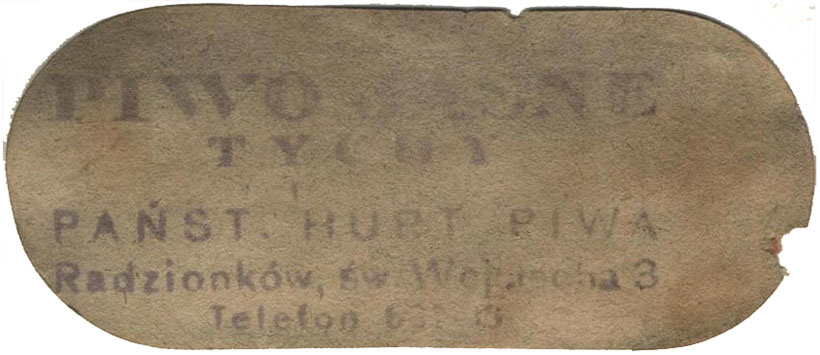 PIWO JASNE
TYCHY
PAŃST. HURT PIWA
Radzionków, św. Wojciecha 3
Telefon